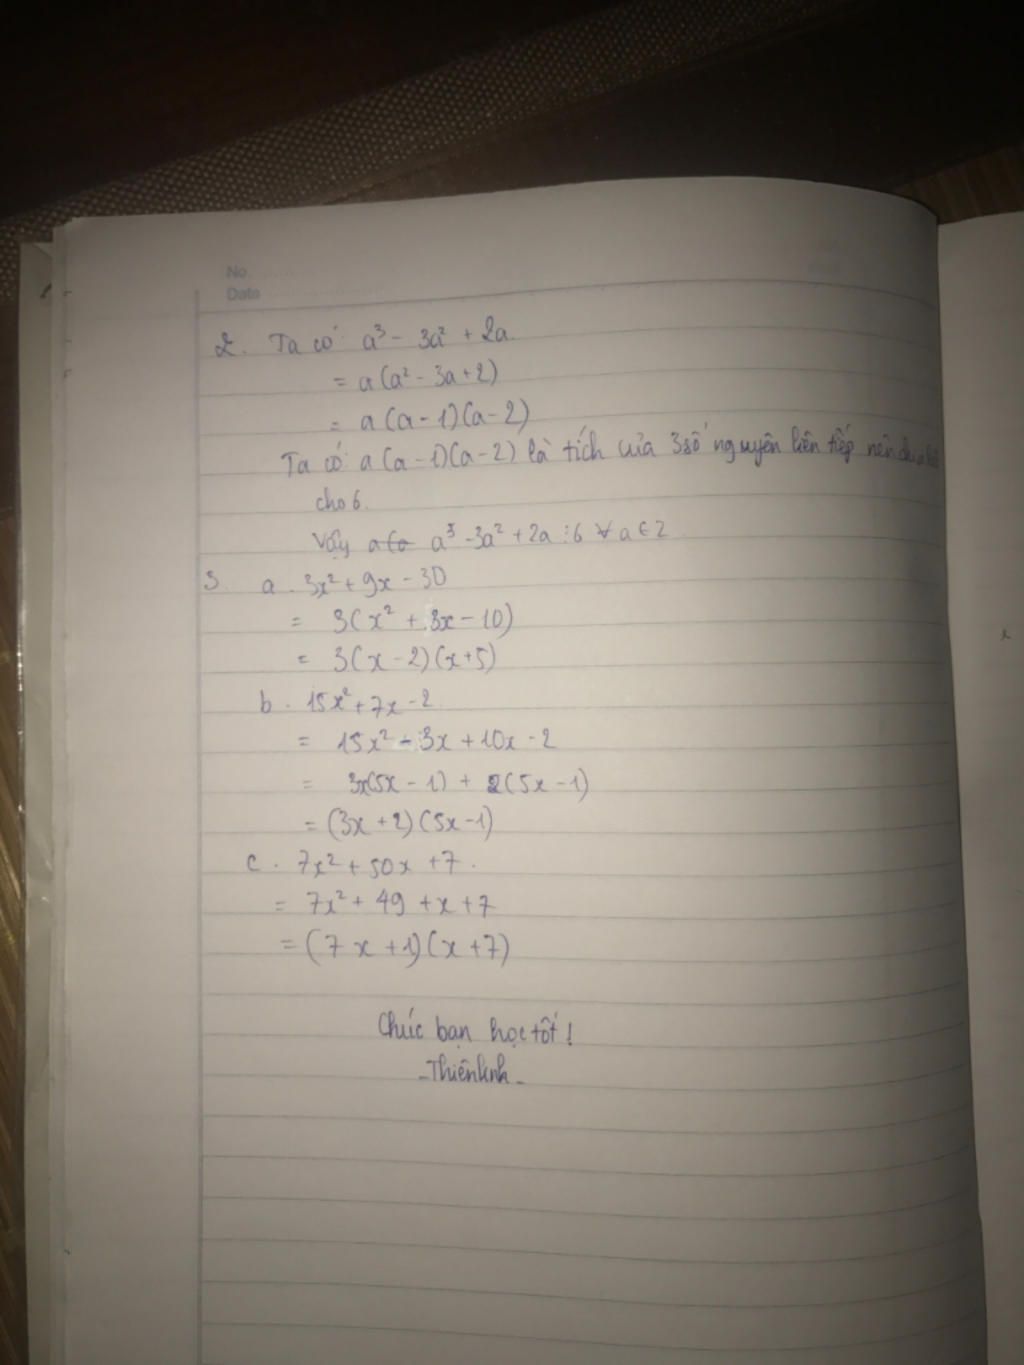 No.
Date
2. Ta có: a³ - 3a² + 2a
= a(a² - 3a + 2)
= a(a - 1)(a - 2)
Ta có: a(a - 1)(a - 2) là tích của 3 số nguyên liên tiếp nên
cho 6.
Vậy a³ - 3a² + 2a ⋮ 6 ∀ a ∈ Z
3. a. 3x² + 9x - 30
= 3(x² + 3x - 10)
= 3(x - 2)(x + 5)
b. 15x² + 7x - 2
= 15x² - 3x + 10x - 2
= 3x(5x - 1) + 2(5x - 1)
= (3x + 2)(5x - 1)
c. 7x² + 50x + 7.
= 7x² + 49 + x + 7
= (7x + 1)(x + 7)
Chúc bạn học tốt!
- Thiênlinh -